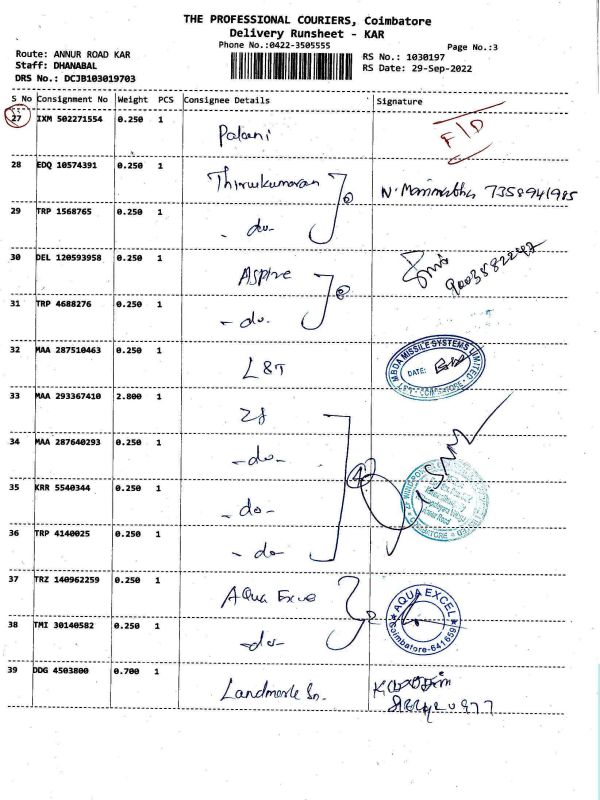 THE PROFESSIONAL COURIERS, Coimbatore
Delivery Runsheet - KAR
Phone No.:0422-3505555
Page No.:3
Route: ANNUR ROAD KAR
RS No.: 1030197
Staff: DHANABAL
RS Date: 29-Sep-2022
DRS No.: DCJB103019703
S No Consignment No Weight PCS Consignee Details Signature
27 IXM 502271554 0.250 1 Palani F/D
28 EDQ 10574391 0.250 1 Thirukumaran 2 N. 7358941985
29 TRP 1568765 0.250 1 - do -
30 DEL 120593958 0.250 1 Aspire 2
31 TRP 4688276 0.250 1 - do -
32 MAA 287510463 0.250 1 L&T MBDA MISSILE SYSTEMS LIMITED DATE: COIMBATORE
33 MAA 293367410 2.800 1
34 MAA 287640293 0.250 1 - do - 4
35 KRR 5540344 0.250 1 - do -
36 TRP 4140025 0.250 1 - do -
37 TRZ 140962259 0.250 1 Aqua Excel 2 AQUA EXCEL Coimbatore-641659
38 TMI 30140582 0.250 1 - do -
39 DDG 4503800 0.700 1